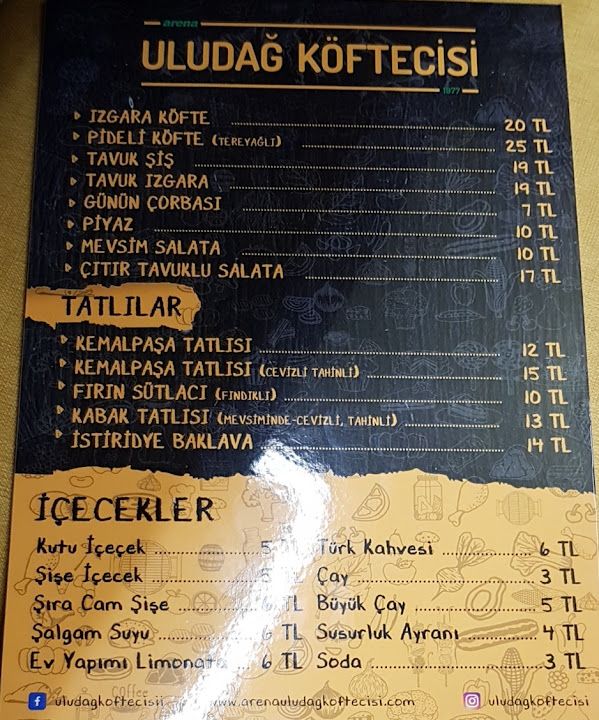 arena
ULUDAĞ KÖFTECİSİ
1977
IZGARA KÖFTE 20 TL
PİDELİ KÖFTE (TEREYAĞLI) 25 TL
TAVUK ŞİŞ 19 TL
TAVUK IZGARA 19 TL
GÜNÜN ÇORBASI 7 TL
PİYAZ 10 TL
MEVSİM SALATA 10 TL
ÇITIR TAVUKLU SALATA 17 TL
TATLILAR
KEMALPAŞA TATLISI 12 TL
KEMALPAŞA TATLISI (CEVİZLİ TAHİNLİ) 15 TL
FIRIN SÜTLACI (FINDIKLI) 10 TL
KABAK TATLISI (MEVSİMİNDE-CEVİZLİ, TAHİNLİ) 13 TL
İSTİRİDYE BAKLAVA 14 TL
İÇECEKLER
Kutu İçeçek 5 TL Türk Kahvesi 6 TL
Şişe İçecek 5 TL Çay 3 TL
Şıra Cam Şişe 6 TL Büyük Çay 5 TL
Şalgam Suyu 6 TL Susurluk Ayranı 4 TL
Ev Yapımı Limonata 6 TL Soda 3 TL
uludagkoftecisii www.arenauludagkoftecisi.com uludagkoftecisi